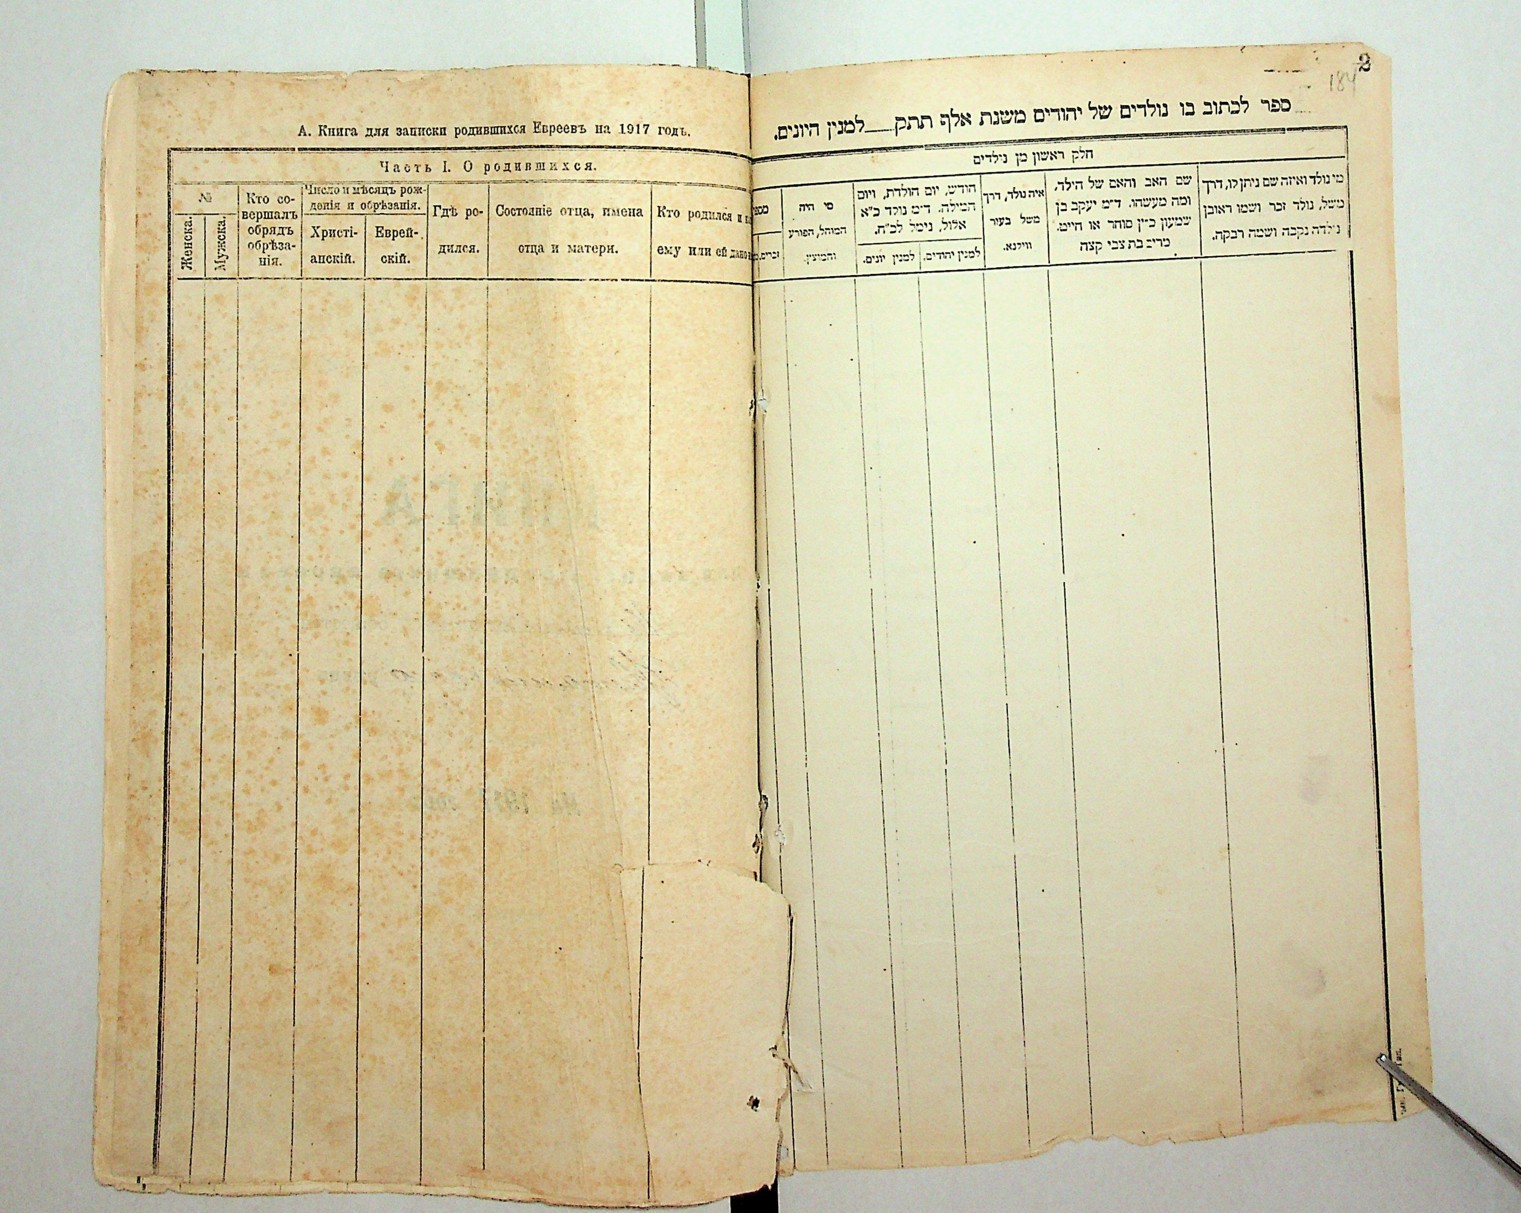 А. Книга для записки родившихся Евреевъ на 1917 годъ.
Часть I. О родившихся.
№
Женска.
Мужска.
Кто со-
вершалъ
обрядъ
обрѣза-
нія.
Число и мѣсяцъ рож-
денія и обрѣзанія.
Христі-
анскій.
Еврей-
скій.
Гдѣ ро-
дился.
Состояніе отца, имена
отца и матери.
Кто родился и
ему или ей дано
2
184
ספר לכתוב בו נולדים של יהודים משנת אלף תתק למנין היונים.
חלק ראשון מן נילדים
מי נולד ואיזה שם ניתן לו, דרך
משל, נולד זכר ושמו ראובן
נילדה נקבה ושמה רבקה.
שם האב והאם של הילד,
ומה מעשהו. ד״מ יעקב בן
שמעון כ״ץ סוחר או חייט.
מרים בת צבי קצה
איה נולד, דרך
משל בעיר
ווילנא.
חודש, יום הולדת, ויום
המילה. ד״מ נולד כ״א
אלול, נימל לכ״ח.
למנין יהודים.
למנין יונים.
מי היה
המוהל, הפורע
והמוצץ.
מספר
זכרים.
КНИГА